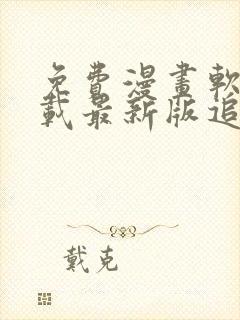 免費漫畫軟
載最新版追
戴克